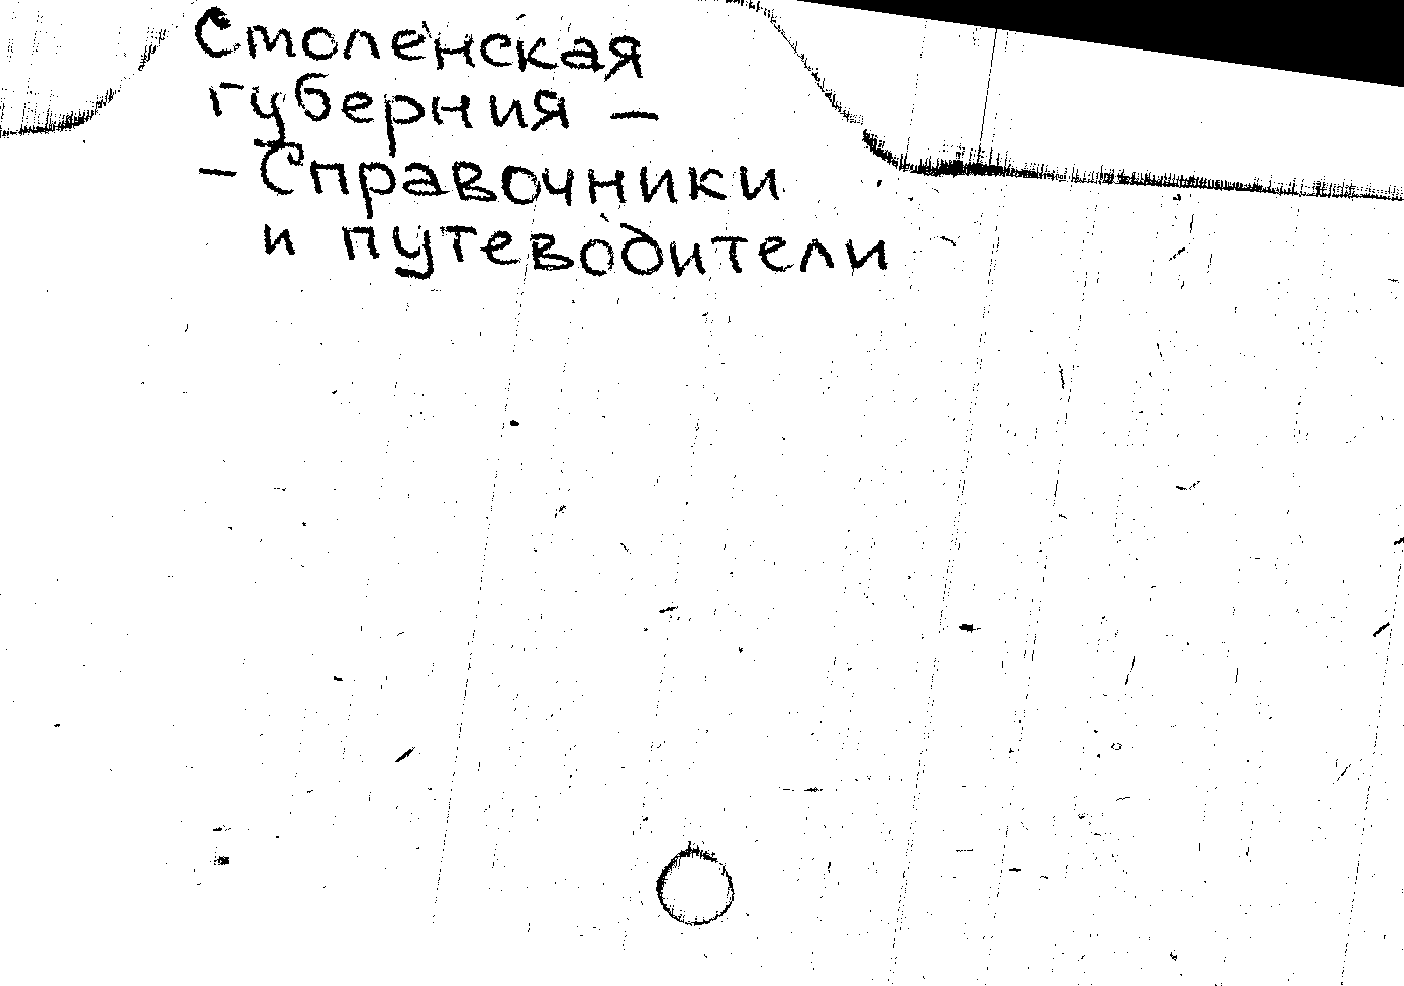 Смоленская
губерния –
– Справочники
и путеводители